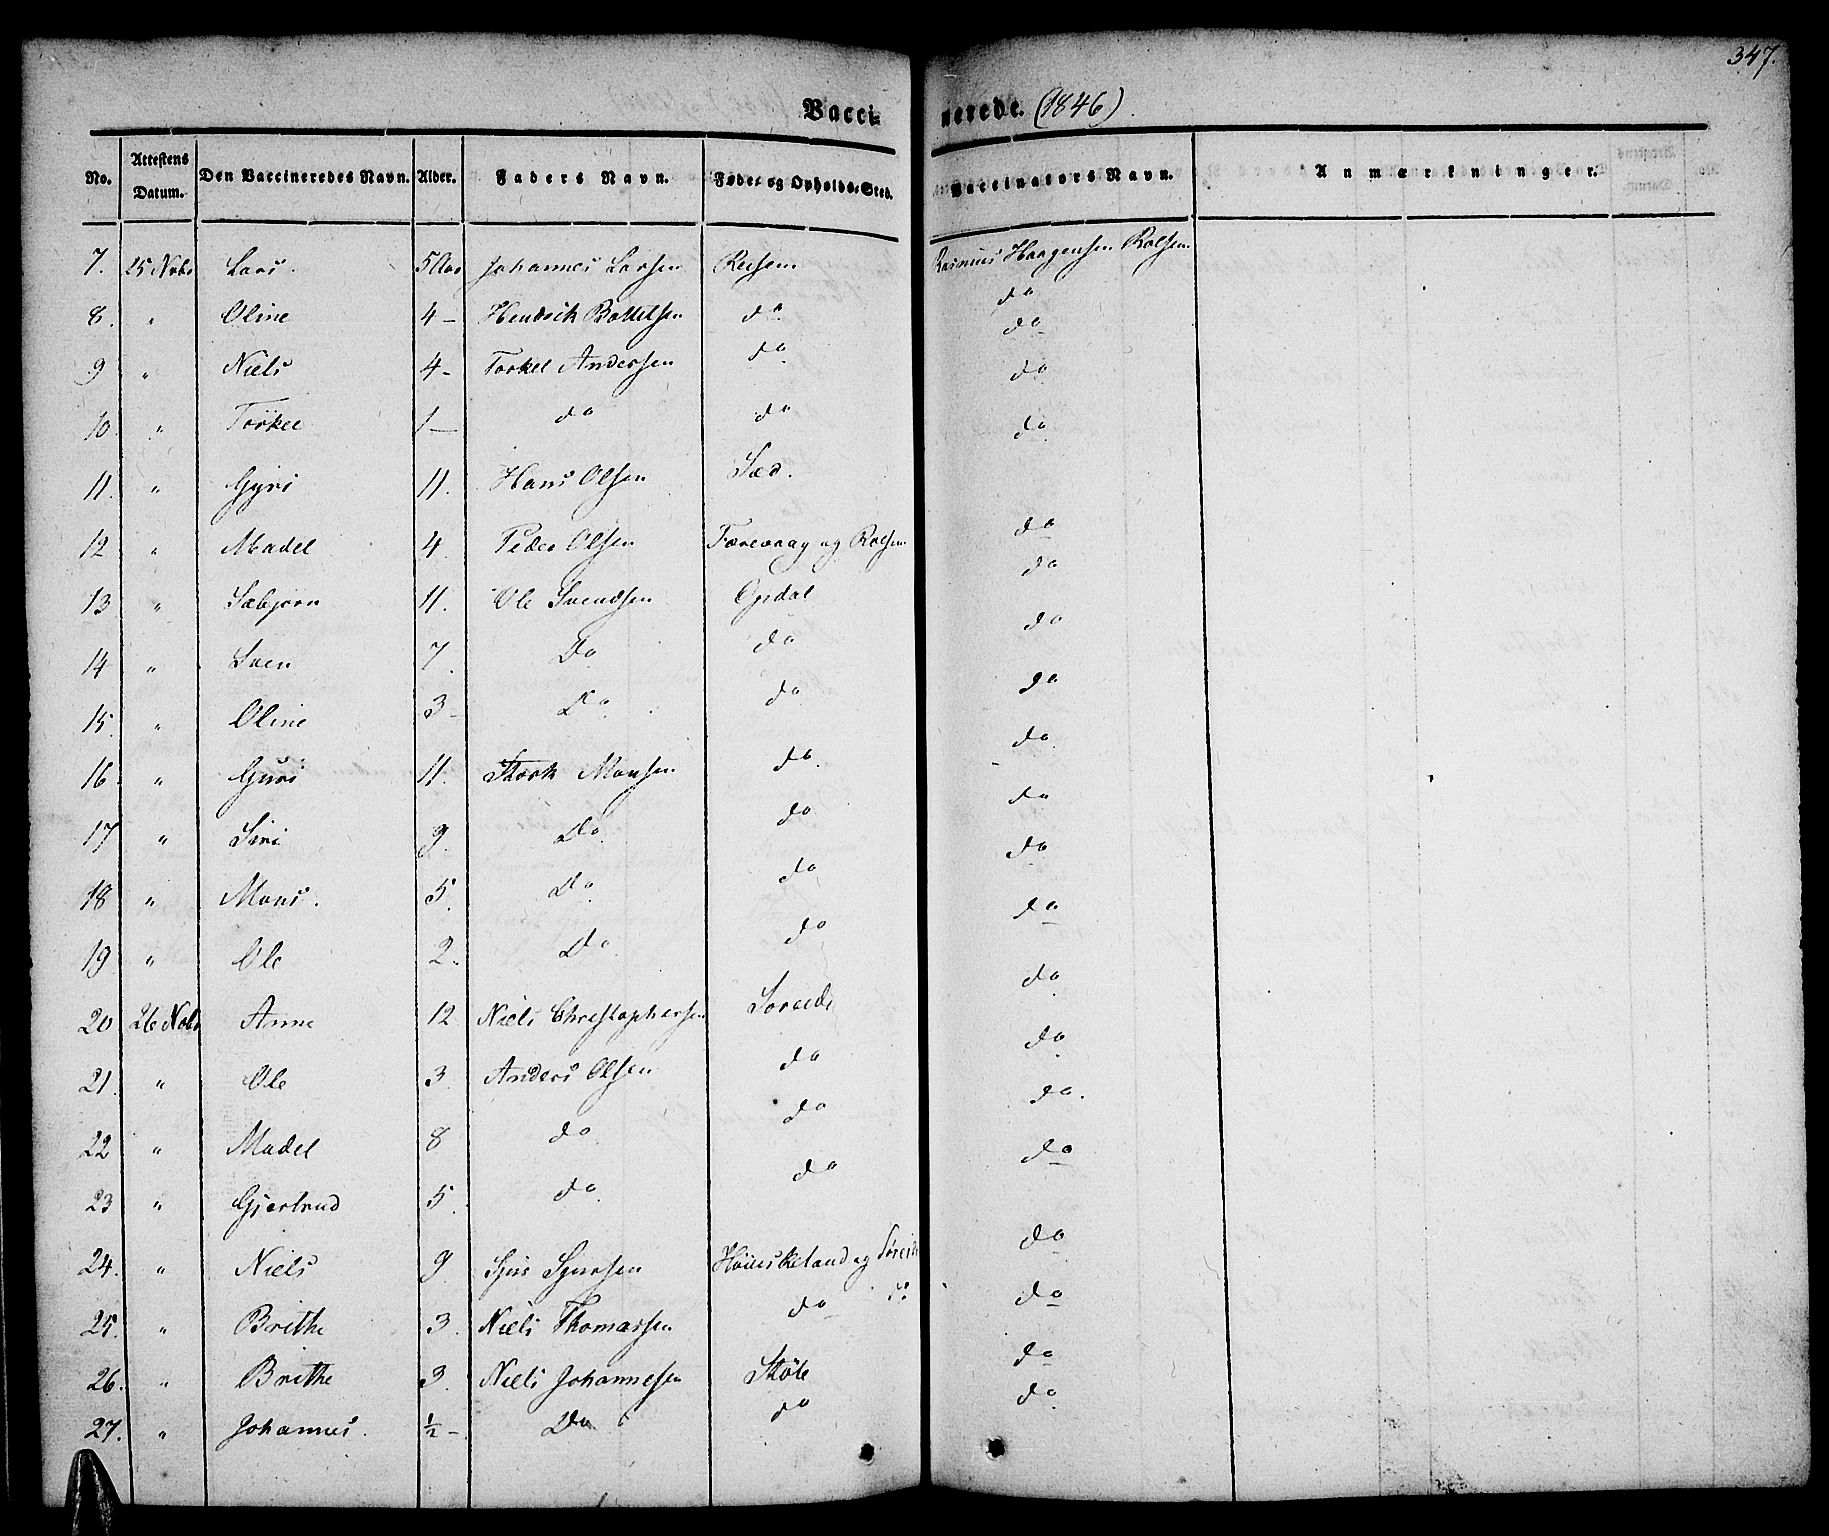 347.
Vaccinerede. (1846)
No. Attestens Datum. Den Vaccineredes Navn. Alder. Faders Navn. Føde- og Opholds-Sted. Vaccinators Navn. Anmærkninger.
7. 15 Nobr Lars. 5 Aar Johannes Larsen Rolsen Rasmus Haagensen Rolsen
8. " Oline 4 - Hendrik Bottelsen do do
9 " Niels 4 - Torkel Andersen do do
10 " Törkel 1 - do do do
11. " Gyri 11. Hans Olsen Sæd. do
12 " Madel 4. Peder Olsen Færevaag og Rolsen do
13 " Sæbjørn 11. Ole Svendsen Opdal do
14 " Sven 7. Do do do
15. " Oline 3 - Do do do
16. " Guri 11. Stork Monsen do. do
17 " Siri 9. Do do do
18 " Mons. 5. Do do do
19 " Ole 2. Do do do
20 26 Nobr Anne 12 Niels Christophersen Soreide do
21. " Ole 3. Anders Olsen do do
22 " Madel 8 do do do.
23 " Gjertrud 5. do do do
24. " Niels 9 Sjur Sjursen Høineskeland og Søreide do
25. " Brithe 3. Niels Thomassen do do do
26. " Brithe 3. Niels Johannesen Støle do
27. " Johannes. 1/2 - Do do do